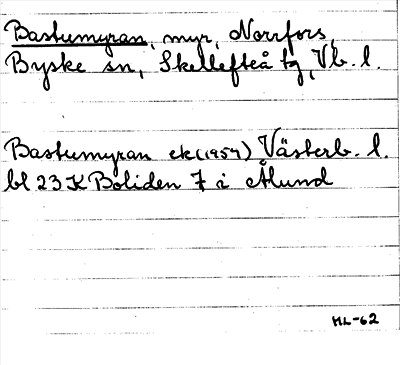 Bastumyran, myr, Norrfors,
Byske sn, Skellefteå tg, Vb. l.
Bastumyran ek (1954) Västerb. l.
bl 23 K Boliden 7 i Ålund
HL-62